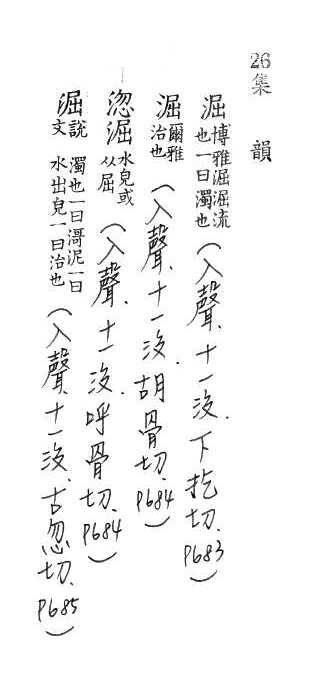 26集韻
淈博雅淈淈流也一曰濁也(入聲、十一沒、下扢切、P683)
淈爾雅治也(入聲、十一沒、胡骨切、P684)
淴淈水皃或从屈(入聲、十一沒、呼骨切、P684)
淈說文濁也一曰滒泥一曰水出皃一曰治也(入聲、十一沒、古忽切、P685)